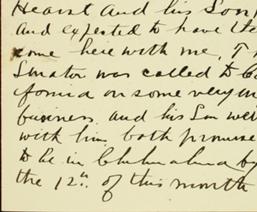 Hearst and his Son
and expected to have the
come here with me, T
Senator was called to C
fornia on some very im
business. and his Son we
with him both promise
to be in Chihuahua by
the 12th of this month